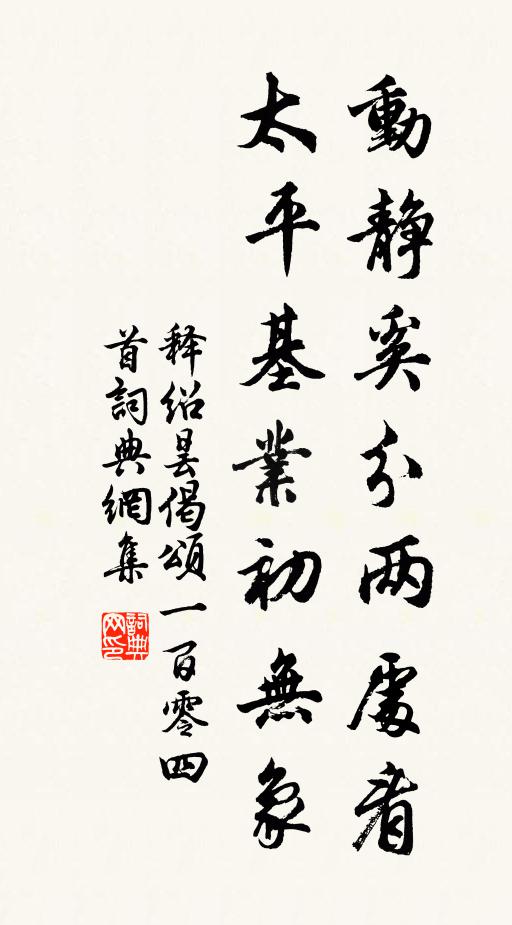 動靜奚分两處看
太平基業初無象
释绍昙偈頌一百零四
首詞典網集
詞典网印